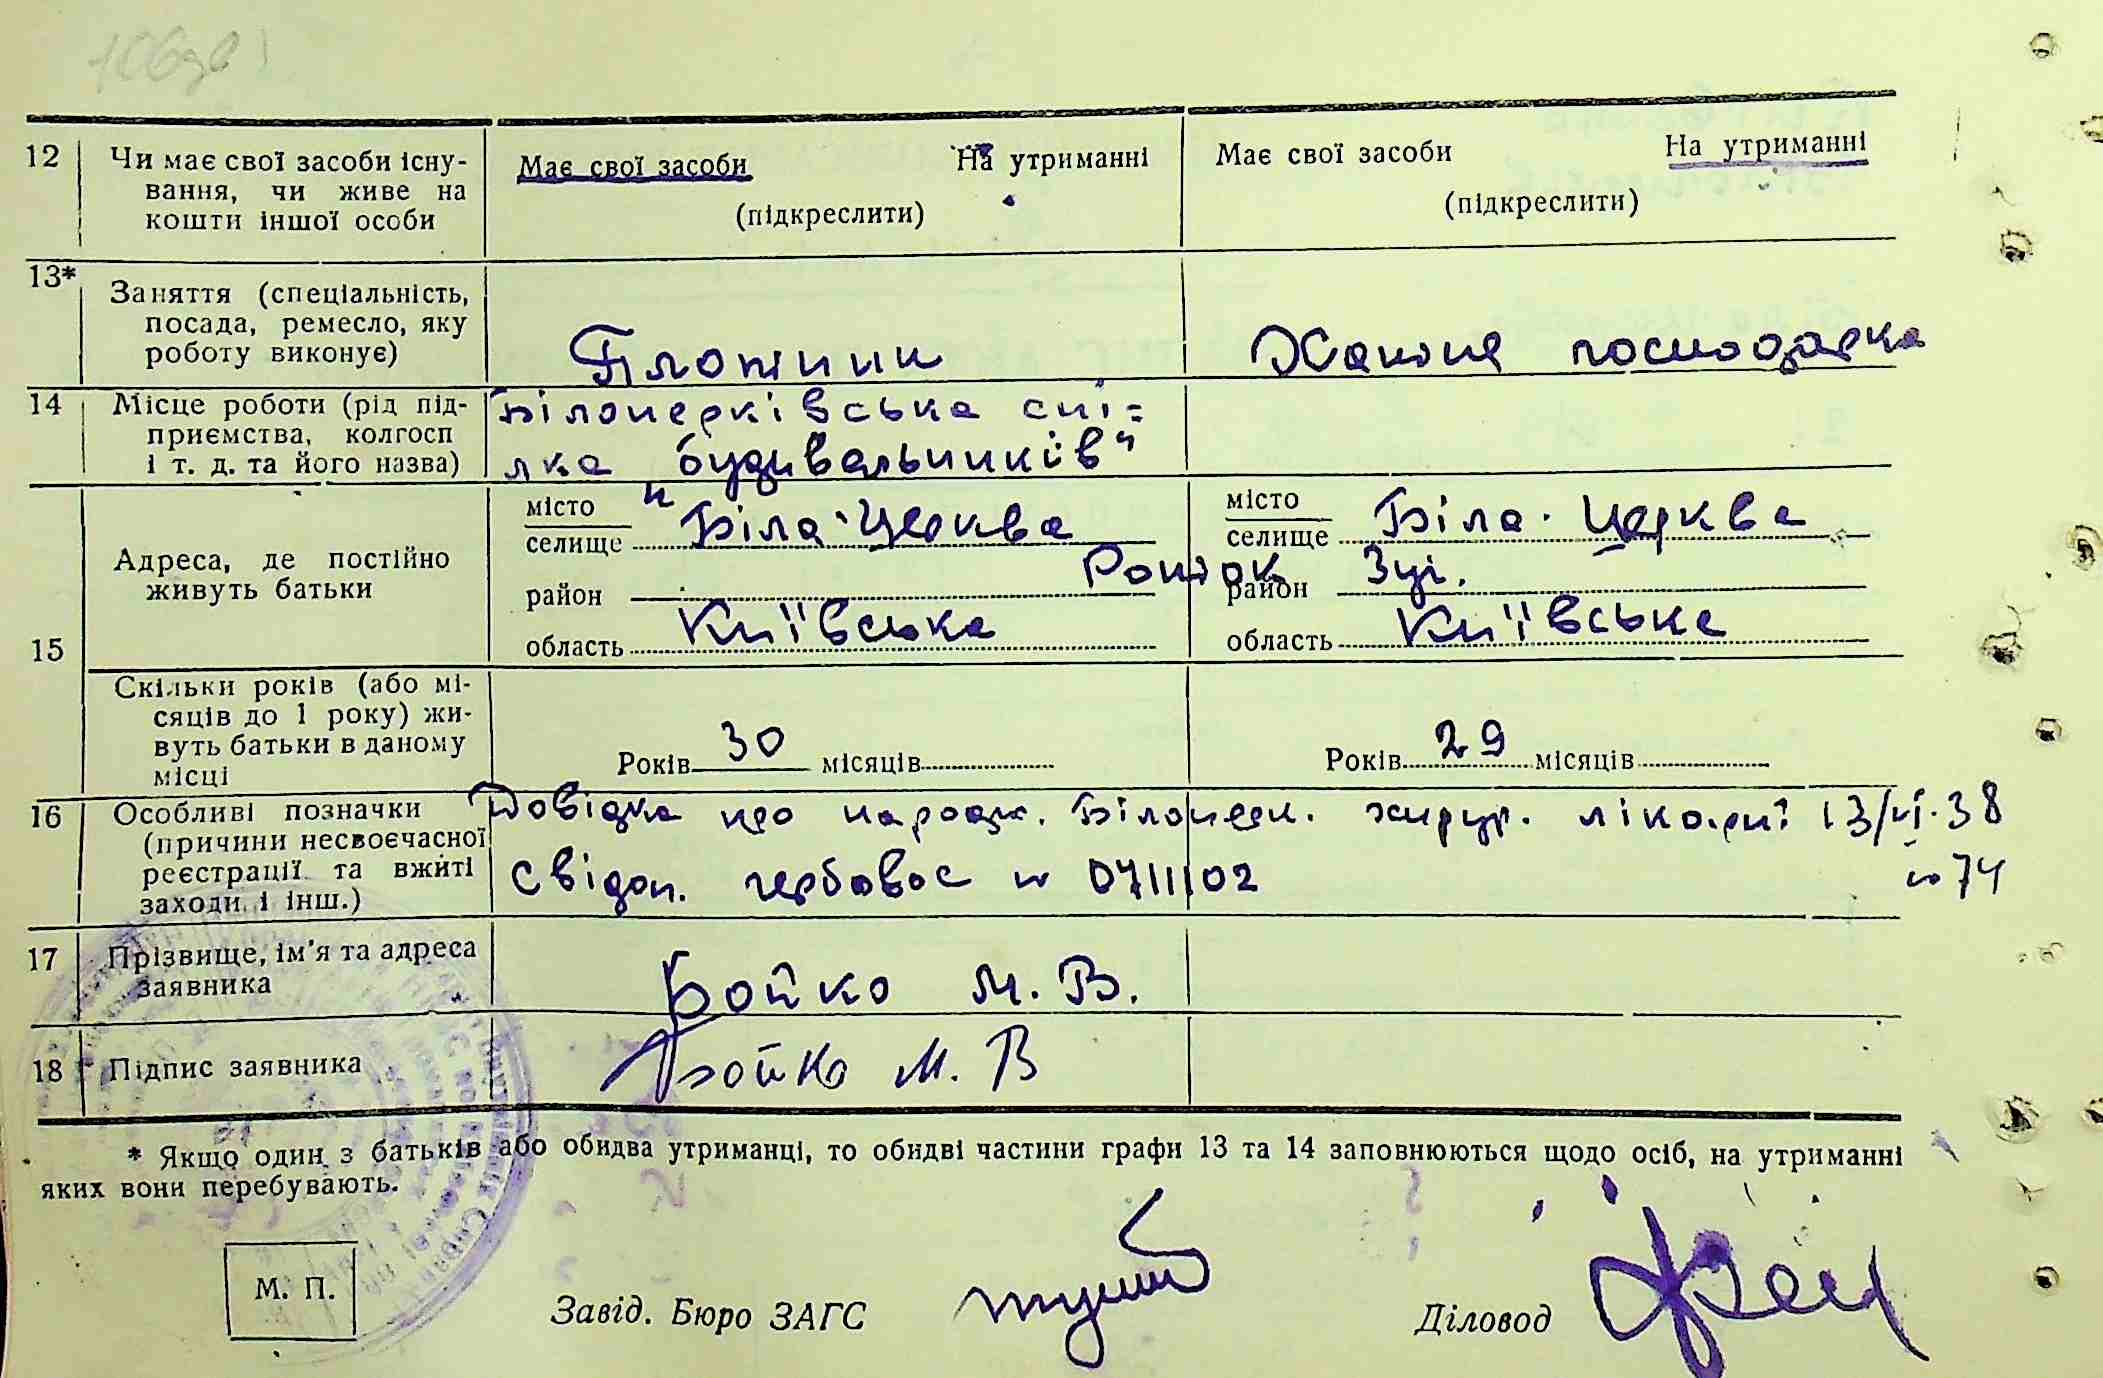 12
Чи має свої засоби існу-
вання, чи живе на
кошти іншої особи
Має свої засоби На утриманні
(підкреслити)
Має свої засоби На утриманні
(підкреслити)
13*
Заняття (спеціальність,
посада, ремесло, яку
роботу виконує)
Плотник
Хатня господарка
14
Місце роботи (рід під-
приємства, колгосп
і т. д. та його назва)
Білоцерківська спі=
лка "будивальників"
15
Адреса, де постійно
живуть батьки
місто
селище Біла-Церква
район Роток 3
область Київська
місто
селище Біла-Церква
район
область Київська
Скільки років (або мі-
сяців до 1 року) жи-
вуть батьки в даному
місці
Років 30 місяців
Років 29 місяців
16
Особливі позначки
(причини несвоєчасної
реєстрації та вжиті
заходи і інш.)
Довідка про народж. Білоцерк. хирур. лікарні 13/VI.38
№ 74
Свідоц. гербовое № 0711102
17
Прізвище, ім'я та адреса
заявника
Бойко М. В.
18
Підпис заявника
Бойко М. В
* Якщо один з батьків або обидва утриманці, то обидві частини графи 13 та 14 заповнюються щодо осіб, на утриманні
яких вони перебувають.
М. П.
Завід. Бюро ЗАГС
Діловод